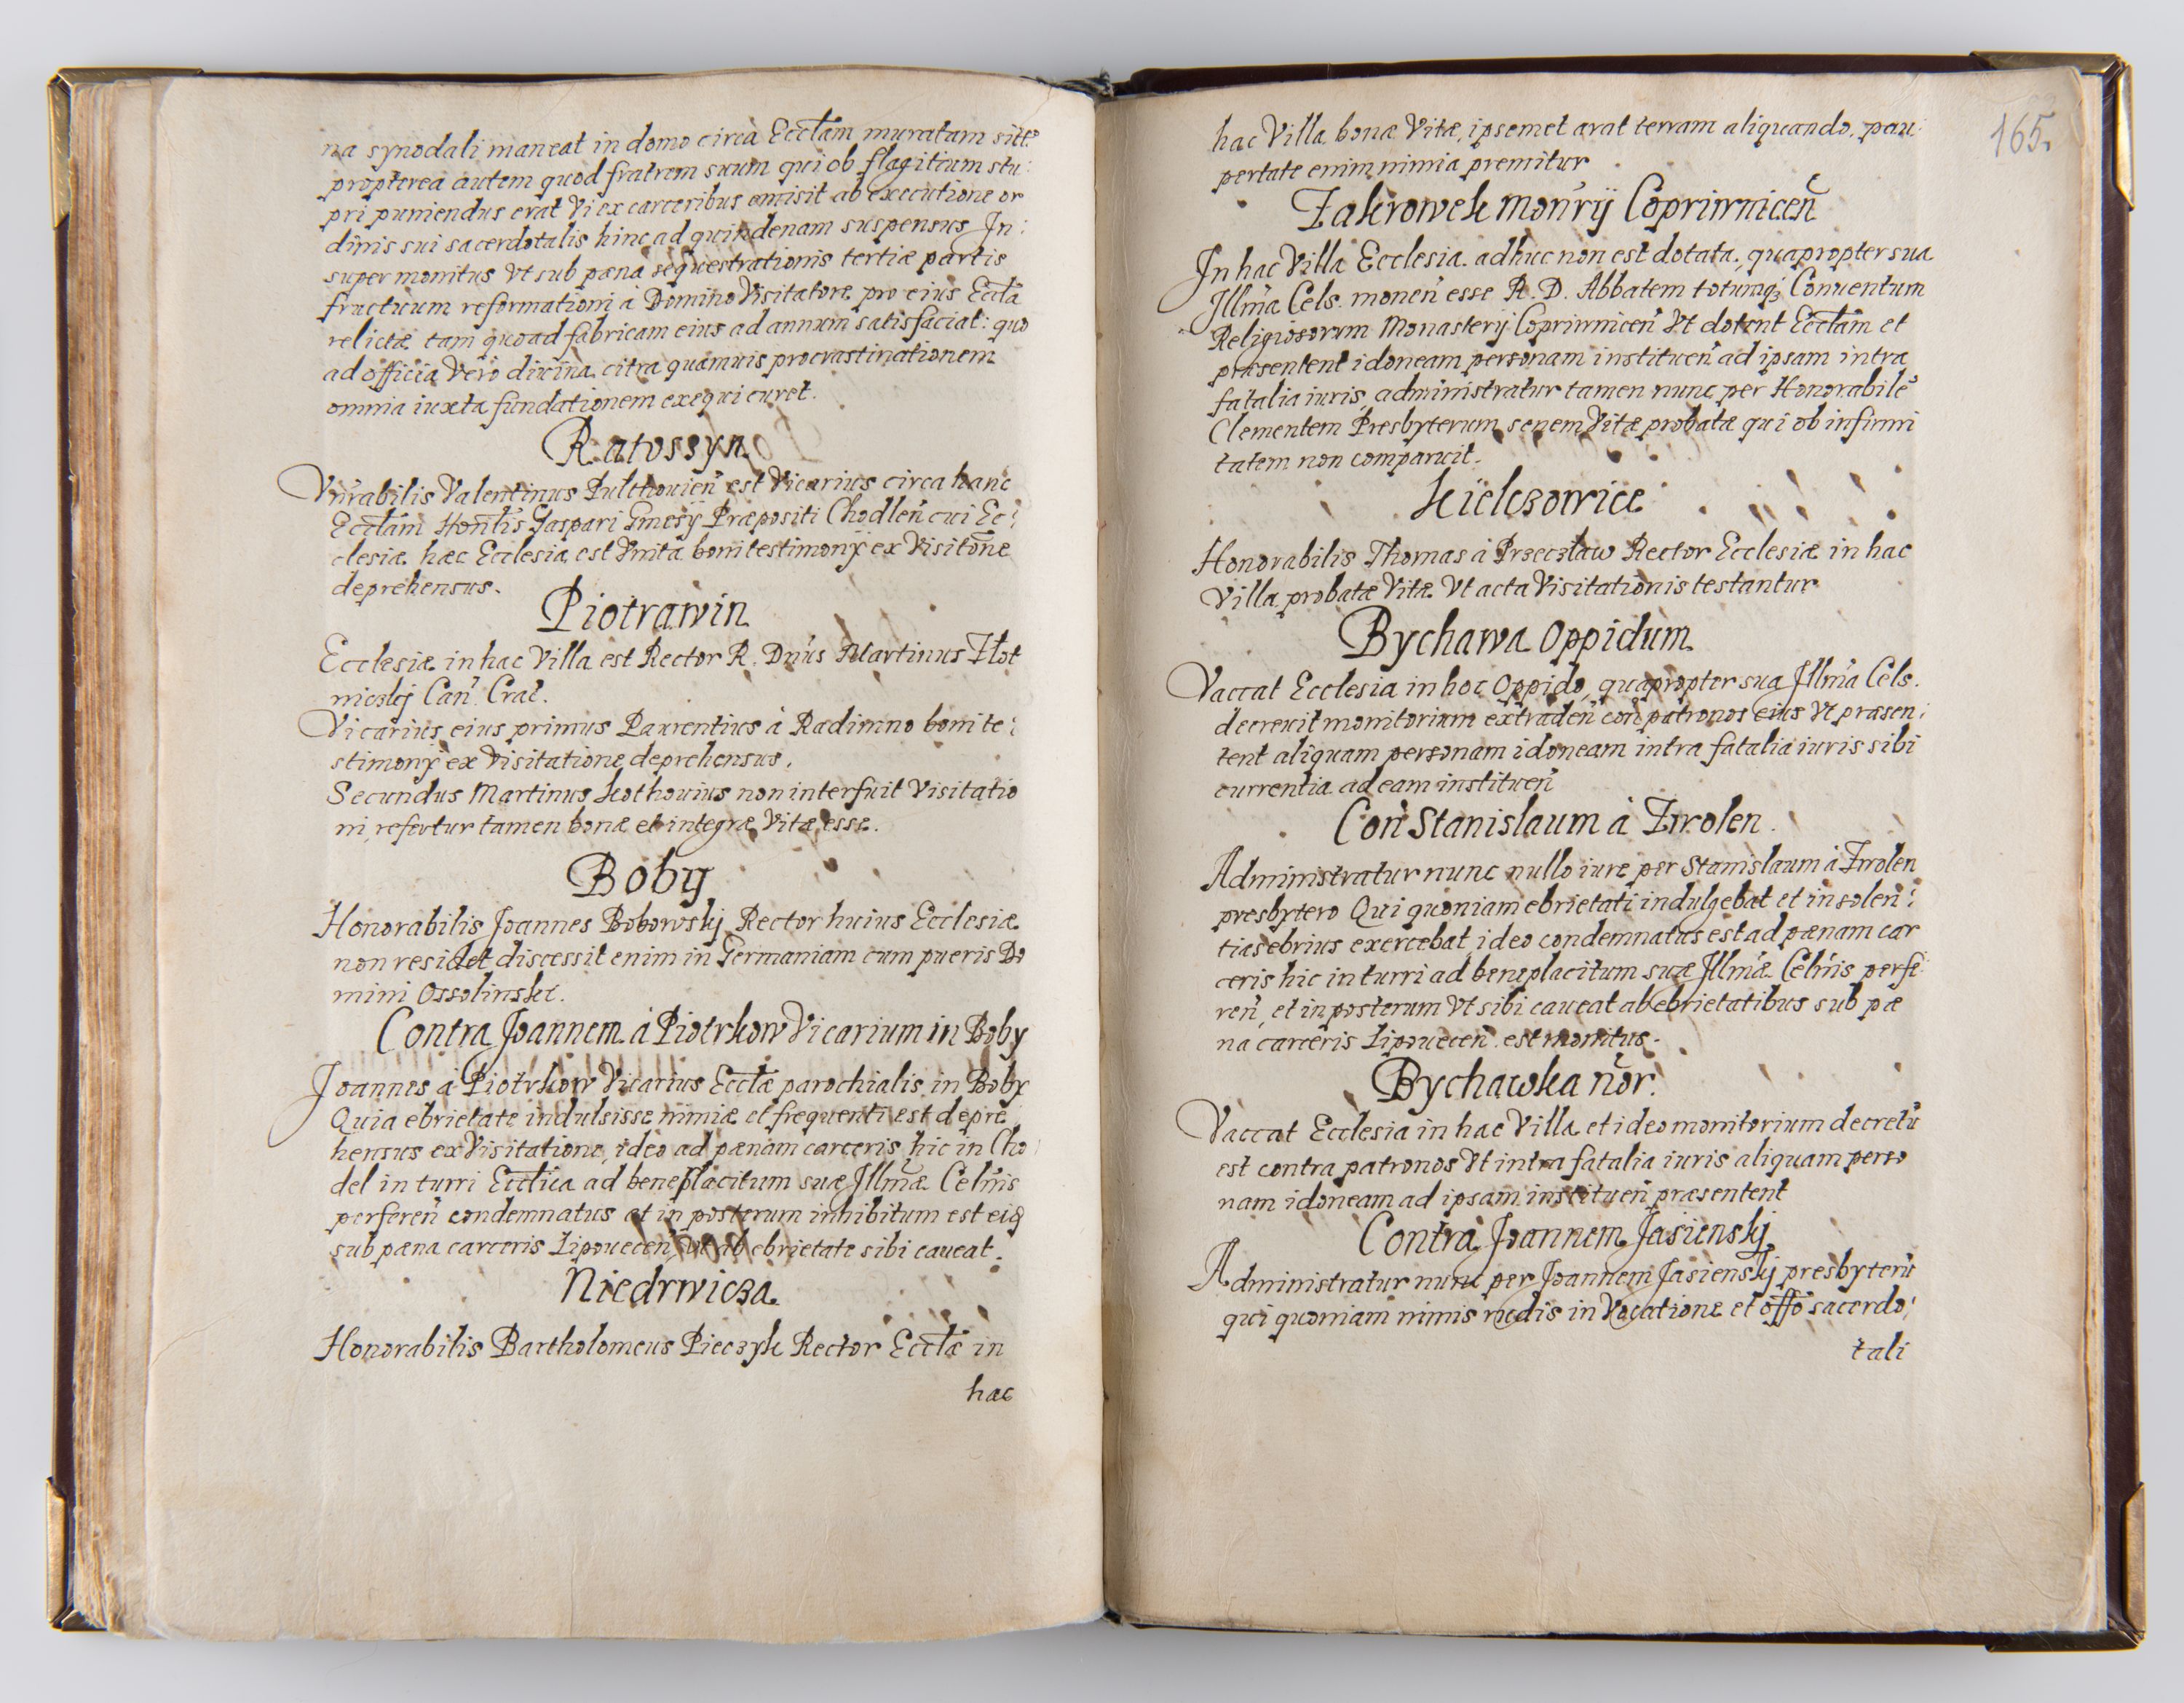 na synodali maneat in domo circa Ecctam muratam sitt:
propterea autem quod fratrem suum qui ob flagitium stu:
pri puniendus erat Vi ex carceribus emisit ab executione or
dinis sui sacerdotalis hinc ad quindenam suspensus In:
super monitus Vt sub pæna sequestrationis tertiæ partis
fructuum reformationi à Domino Visitatore pro eius Eccta
relictæ tam quoad fabricam eius ad annum satisfaciat: quo
ad officia Vero diuina citra quamuis procrastinationem
omnia iuxta fundationem exequi curet.
Ratossyn
Vnrabilis Valentinus Pulthouien̄ est Vicarius circa hanc
Ecctam Hontis Gaspari Præpositi Chodlen̄ cui Ec:
clesiæ hæc Ecclesia est Vnita boni testimonij ex Visitōne
deprehensus.
Piotrawin
Ecclesiæ in hac Villa est Rector R. Dn̄us Martinus Złot
niczkij Can̄. Crac.
Vicarius eius primus Laurentius à Radimno boni te:
stimonij ex Visitatione deprehensus.
Secundus Martinus Kothouius non interfuit Visitatio
ni, refertur tamen bonæ et integræ Vitæ esse.
Boby
Honorabilis Joannes Bobowskij Rector huius Ecclesiæ
non residet discessit enim in Germaniam cum pueris Do
mini Ossolinski.
Contra Joannem à Piotrkow Vicarium in Boby
Joannes à Piotrkow Vicarius Ecctæ parochialis in Boby
Quia ebrietate indulsisse nimiæ et frequenti est depre
hensus ex Visitatione, ideo ad pænam carceris hic in Cho:
del in turri Ecctica ad beneplacitum suæ Illmæ Celnis
perferen̄ condemnatus et in posterum inhibitum est eiq
sub pæna carceris Lipouecen̄ Vt ab ebrietate sibi caueat.
Niedrwicza
Honorabilis Bartholomeus Pieczyk Rector Ecctæ in
hac
165.
hac Villa bonæ Vitæ, ipsemet arat terram aliquando, pau:
pertate enim nimia premitur
Zakrowek Monrij Coprirnicen̄
In hac Villa Ecclesia adhuc non est dotata, quapropter sua
Illma Cels. monen̄ esse R. D. Abbatem totumq; Conuentum
Religiosorum Monasterij Coprirnicen̄ Vt dotent Ecctam et
præsentent idoneam personam instituen̄ ad ipsam intra
fatalia iuris, administratur tamen nunc per Honorabile
Clementem Presbyterum senem Vitæ probatæ qui ob infirmi
tatem non comparuit.
Kielczowice
Honorabilis Thomas à Przecztaw Rector Ecclesiæ in hac
Villa probatæ Vitæ Vt acta Visitationis testantur
Bychawa Oppidum
Vaccat Ecclesia in hoc Oppido, quapropter sua Illma Cels.
decreuit monitorium extraden̄ con̄ patronos eius Vt præsen:
tent aliquam personam idoneam intra fatalia iuris sibi
currentia ad eam instituen̄
Con̄ Stanislaum à Zwolen.
Administratur nunc nullo iure per Stanislaum à Zwolen
presbytero Qui quoniam ebrietati indulgebat et insolen:
tias ebrius exercebat, ideo condemnatus est ad pænam car
ceris hic in turri ad beneplacitum suæ Illmæ Celnis perfe:
ren̄, et in posterum Vt sibi caueat ab ebrietatibus sub pæ
na carceris Lipouecen̄ est monitus.
Bychawka nor.
Vaccat Ecclesia in hac Villa et ideo monitorium decretū
est contra patronos Vt intra fatalia iuris aliquam perso
nam idoneam ad ipsam instituen̄ præsentent
Contra Joannem Jasienskij
Administratur nunc per Joannem Jasienskij presbyterū
qui quoniam nimis rudis in Vocatione et offo sacerdo:
tali